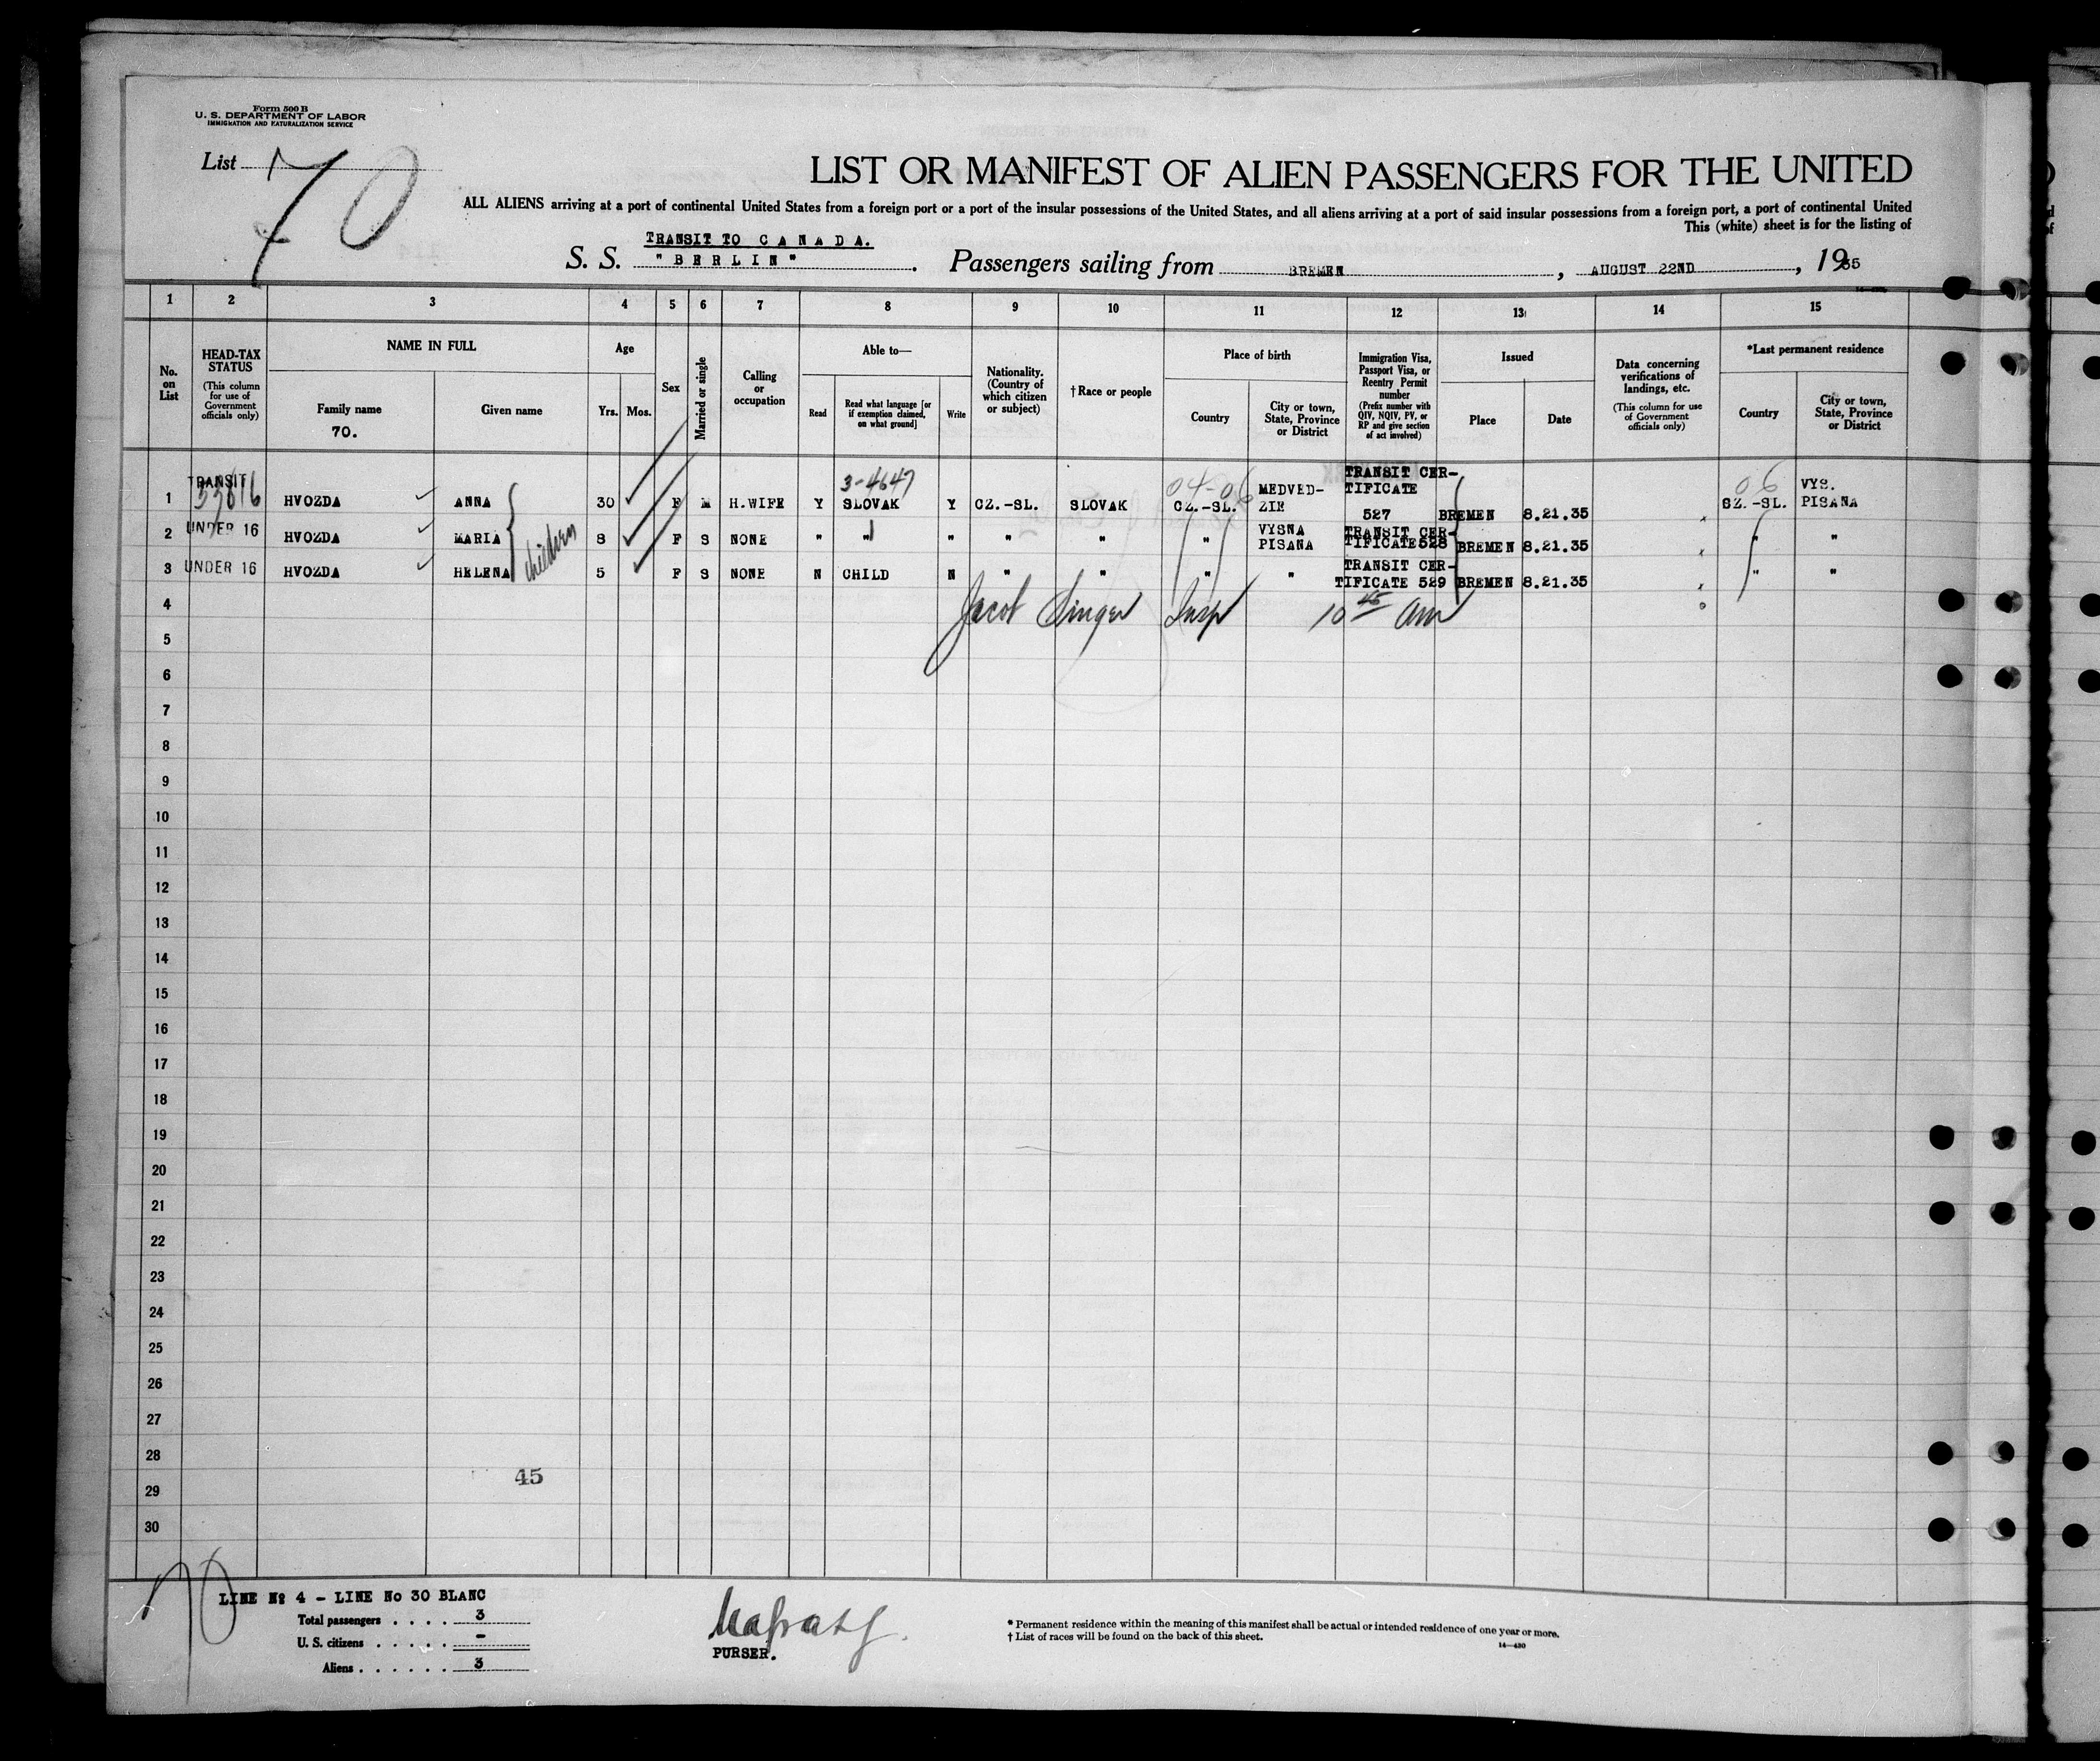 Form 500 B
U. S. DEPARTMENT OF LABOR
IMMIGRATION AND NATURALIZATION SERVICE
List 70
LIST OR MANIFEST OF ALIEN PASSENGERS FOR THE UNITED
ALL ALIENS arriving at a port of continental United States from a foreign port or a port of the insular possessions of the United States, and all aliens arriving at a port of said insular possessions from a foreign port, a port of continental United
This (white) sheet is for the listing of
TRANSIT TO CANADA.
S. S. "BERLIN". Passengers sailing from BREMEN, AUGUST 22ND, 1935
1 2 3 4 5 6 7 8 9 10 11 12 13 14 15
No. on List
HEAD-TAX STATUS (This column for use of Government officials only)
NAME IN FULL
Family name
70.
Given name
Age
Yrs. Mos.
Sex
Married or single
Calling or occupation
Able to—
Read
Read what language [or if exemption claimed, on what ground]
Write
Nationality. (Country of which citizen or subject)
†Race or people
Place of birth
Country
City or town, State, Province or District
Immigration Visa, Passport Visa, or Reentry Permit number (Prefix number with QIV, NQIV, PV, or RP and give section of act involved)
Issued
Place
Date
Data concerning verifications of landings, etc. (This column for use of Government officials only)
*Last permanent residence
Country
City or town, State, Province or District
TRANSIT 3-4647 04-06 TRANSIT CER- 06 VYS.
1 HVOZDA ANNA 30 F M H.WIFE Y SLOVAK Y CZ.-SL. SLOVAK CZ.-SL. MEDVED-ZIE TIFICATE 527 BREMEN 8.21.35 CZ.-SL. PISANA
2 UNDER 16 HVOZDA MARIA children 8 F S NONE " " " " " " VYSNA PISANA TRANSIT CER-TIFICATE 528 BREMEN 8.21.35 " "
3 UNDER 16 HVOZDA HELENA 5 F S NONE N CHILD N " " " " TRANSIT CER-TIFICATE 529 BREMEN 8.21.35 " "
4 Jacob Singer Insp 10 45 am
5
6
7
8
9
10
11
12
13
14
15
16
17
18
19
20
21
22
23
24
25
26
27
28
45
29
30
70
LINE No 4 - LINE No 30 BLANC
Total passengers . . . . 3
U. S. citizens . . . . . -
Aliens . . . . . . 3
PURSER.
* Permanent residence within the meaning of this manifest shall be actual or intended residence of one year or more.
† List of races will be found on the back of this sheet.
14—430